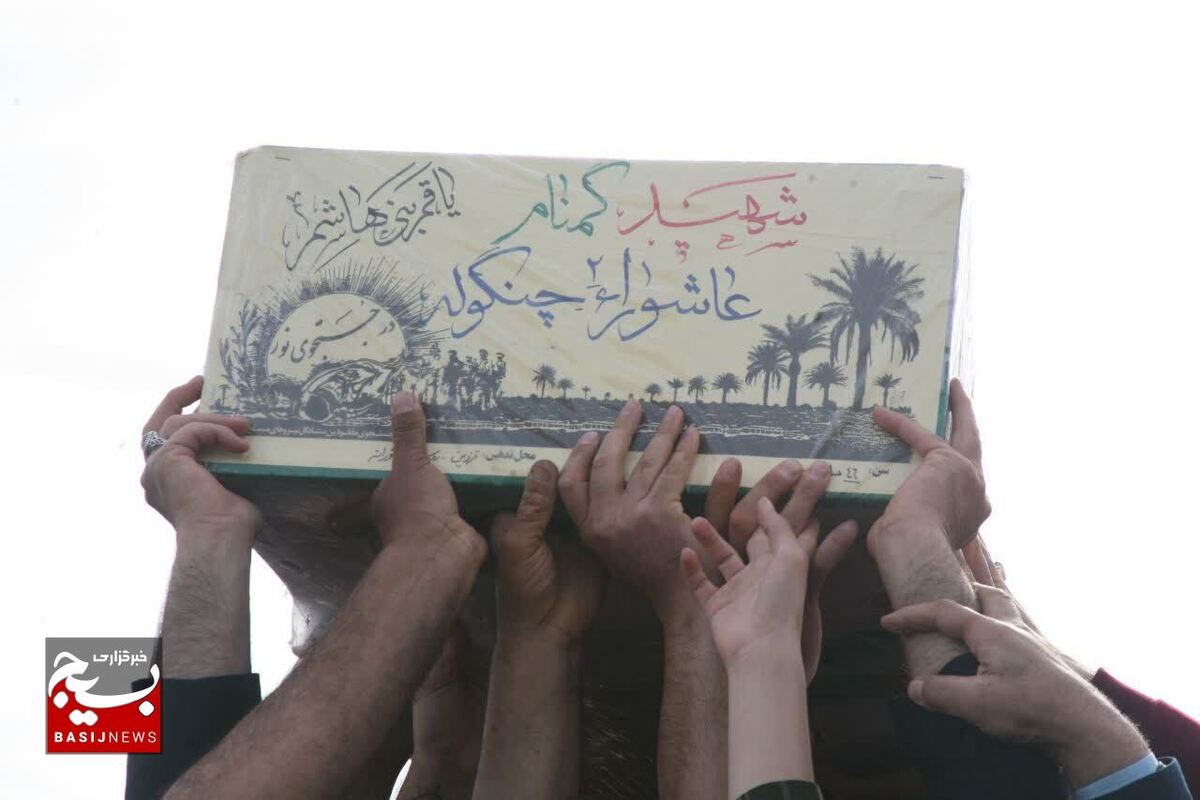 شهید گمنام
یا قمر بنی هاشم
عاشورا ۲ چنگوله
در جستجوی نور
محل تدفین: قزوین -
سن: ۴۲
خبرگزاری
بسیج
BASIJNEWS